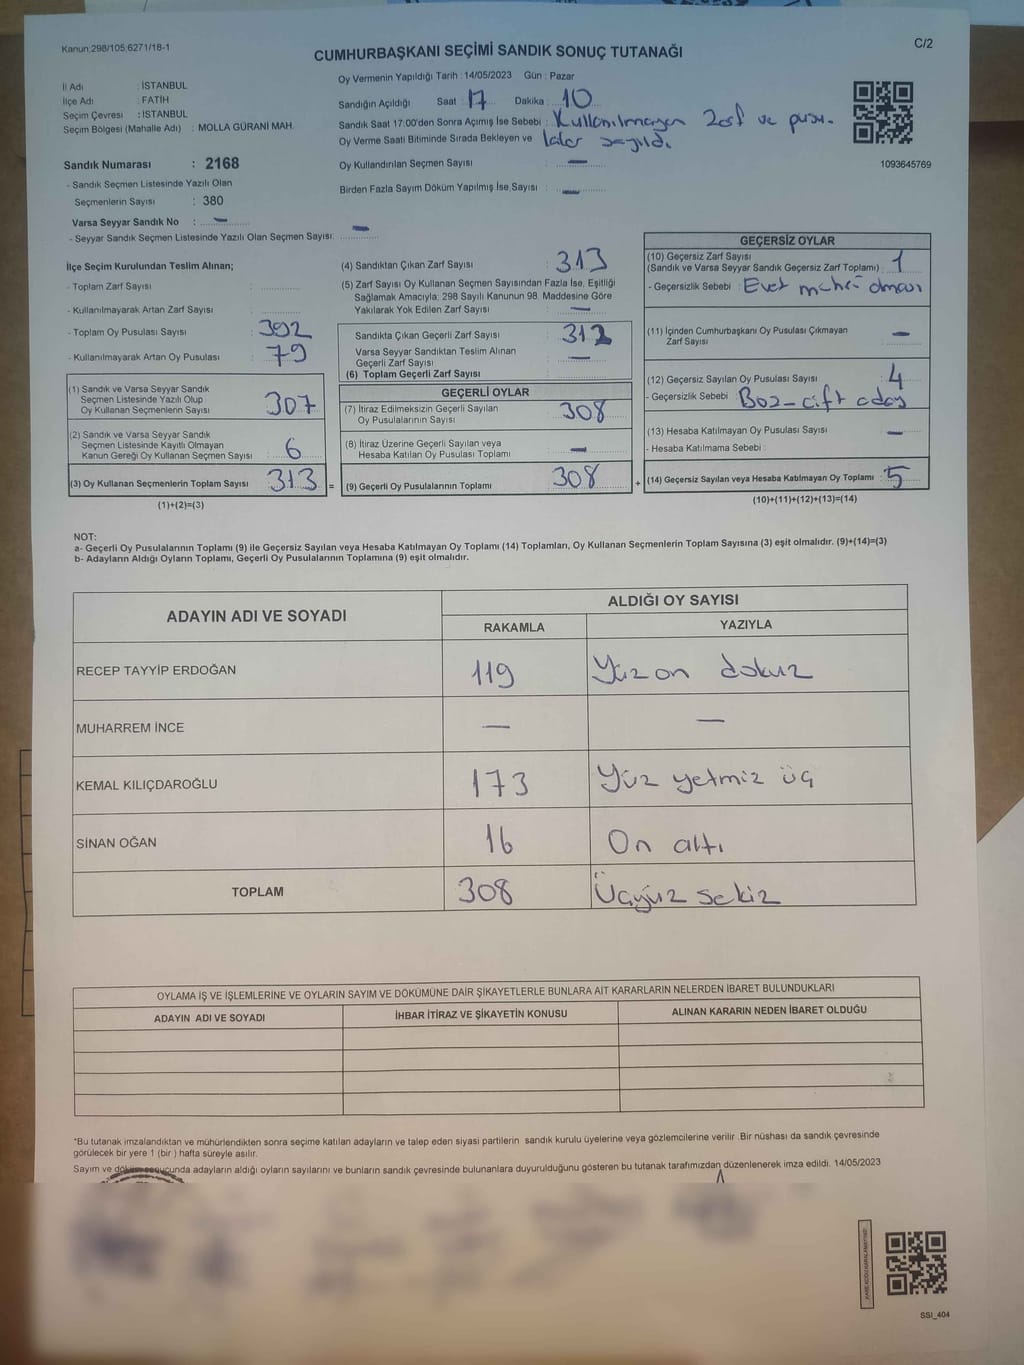 Kanun:298/105;6271/18-1
C/2
CUMHURBAŞKANI SEÇİMİ SANDIK SONUÇ TUTANAĞI
İl Adı : İSTANBUL
İlçe Adı : FATİH
Seçim Çevresi : İSTANBUL
Seçim Bölgesi (Mahalle Adı) : MOLLA GÜRANİ MAH.
Sandık Numarası : 2168
- Sandık Seçmen Listesinde Yazılı Olan
Seçmenlerin Sayısı : 380
Varsa Seyyar Sandık No : —
- Seyyar Sandık Seçmen Listesinde Yazılı Olan Seçmen Sayısı: —
Oy Vermenin Yapıldığı Tarih : 14/05/2023 Gün : Pazar
Sandığın Açıldığı Saat : 17 Dakika : 10
Sandık Saat 17:00'den Sonra Açımış İse Sebebi : Kullanılmayan zarf ve pusu-
Oy Verme Saati Bitiminde Sırada Bekleyen ve lalar sayıldı
Oy Kullandırılan Seçmen Sayısı : —
Birden Fazla Sayım Döküm Yapılmış İse Sayısı : —
1093645769
İlçe Seçim Kurulundan Teslim Alınan;
- Toplam Zarf Sayısı :
- Kullanılmayarak Artan Zarf Sayısı :
- Toplam Oy Pusulası Sayısı : 392
- Kullanılmayarak Artan Oy Pusulası : 79
(1) Sandık ve Varsa Seyyar Sandık
Seçmen Listesinde Yazılı Olup
Oy Kullanan Seçmenlerin Sayısı : 307
(2) Sandık ve Varsa Seyyar Sandık
Seçmen Listesinde Kayıtlı Olmayan
Kanun Gereği Oy Kullanan Seçmen Sayısı : 6
(3) Oy Kullanan Seçmenlerin Toplam Sayısı : 313 =
(1)+(2)=(3)
(4) Sandıktan Çıkan Zarf Sayısı : 313
(5) Zarf Sayısı Oy Kullanan Seçmen Sayısından Fazla İse, Eşitliği
Sağlamak Amacıyla; 298 Sayılı Kanunun 98. Maddesine Göre
Yakılarak Yok Edilen Zarf Sayısı : —
Sandıkta Çıkan Geçerli Zarf Sayısı : 312
Varsa Seyyar Sandıktan Teslim Alınan
Geçerli Zarf Sayısı : —
(6) Toplam Geçerli Zarf Sayısı :
GEÇERLİ OYLAR
(7) İtiraz Edilmeksizin Geçerli Sayılan
Oy Pusulalarının Sayısı : 308
(8) İtiraz Üzerine Geçerli Sayılan veya
Hesaba Katılan Oy Pusulası Toplamı : —
(9) Geçerli Oy Pusulalarının Toplamı : 308 +
GEÇERSİZ OYLAR
(10) Geçersiz Zarf Sayısı
(Sandık ve Varsa Seyyar Sandık Geçersiz Zarf Toplamı) : 1
- Geçersizlik Sebebi : Evet mührü olması
(11) İçinden Cumhurbaşkanı Oy Pusulası Çıkmayan
Zarf Sayısı : —
(12) Geçersiz Sayılan Oy Pusulası Sayısı : 4
- Geçersizlik Sebebi : Boz-çift aday
(13) Hesaba Katılmayan Oy Pusulası Sayısı : —
- Hesaba Katılmama Sebebi :
(14) Geçersiz Sayılan veya Hesaba Katılmayan Oy Toplamı : 5
(10)+(11)+(12)+(13)=(14)
NOT:
a- Geçerli Oy Pusulalarının Toplamı (9) ile Geçersiz Sayılan veya Hesaba Katılmayan Oy Toplamı (14) Toplamları, Oy Kullanan Seçmenlerin Toplam Sayısına (3) eşit olmalıdır. (9)+(14)=(3)
b- Adayların Aldığı Oyların Toplamı, Geçerli Oy Pusulalarının Toplamına (9) eşit olmalıdır.
ADAYIN ADI VE SOYADI
ALDIĞI OY SAYISI
RAKAMLA YAZIYLA
RECEP TAYYİP ERDOĞAN 119 Yüz on dokuz
MUHARREM İNCE — —
KEMAL KILIÇDAROĞLU 173 Yüz yetmiz üç
SİNAN OĞAN 16 On altı
TOPLAM 308 Üçyüz sekiz
OYLAMA İŞ VE İŞLEMLERİNE VE OYLARIN SAYIM VE DÖKÜMÜNE DAİR ŞİKAYETLERLE BUNLARA AİT KARARLARIN NELERDEN İBARET BULUNDUKLARI
ADAYIN ADI VE SOYADI İHBAR İTİRAZ VE ŞİKAYETİN KONUSU ALINAN KARARIN NEDEN İBARET OLDUĞU
*Bu tutanak imzalandıktan ve mühürlendikten sonra seçime katılan adayların ve talep eden siyasi partilerin sandık kurulu üyelerine veya gözlemcilerine verilir .Bir nüshası da sandık çevresinde
görülecek bir yere 1 (bir ) hafta süreyle asılır.
Sayım ve döküm sonucunda adayların aldığı oyların sayılarını ve bunların sandık çevresinde bulunanlara duyurulduğunu gösteren bu tutanak tarafımızdan düzenlenerek imza edildi. 14/05/2023
SSI_404